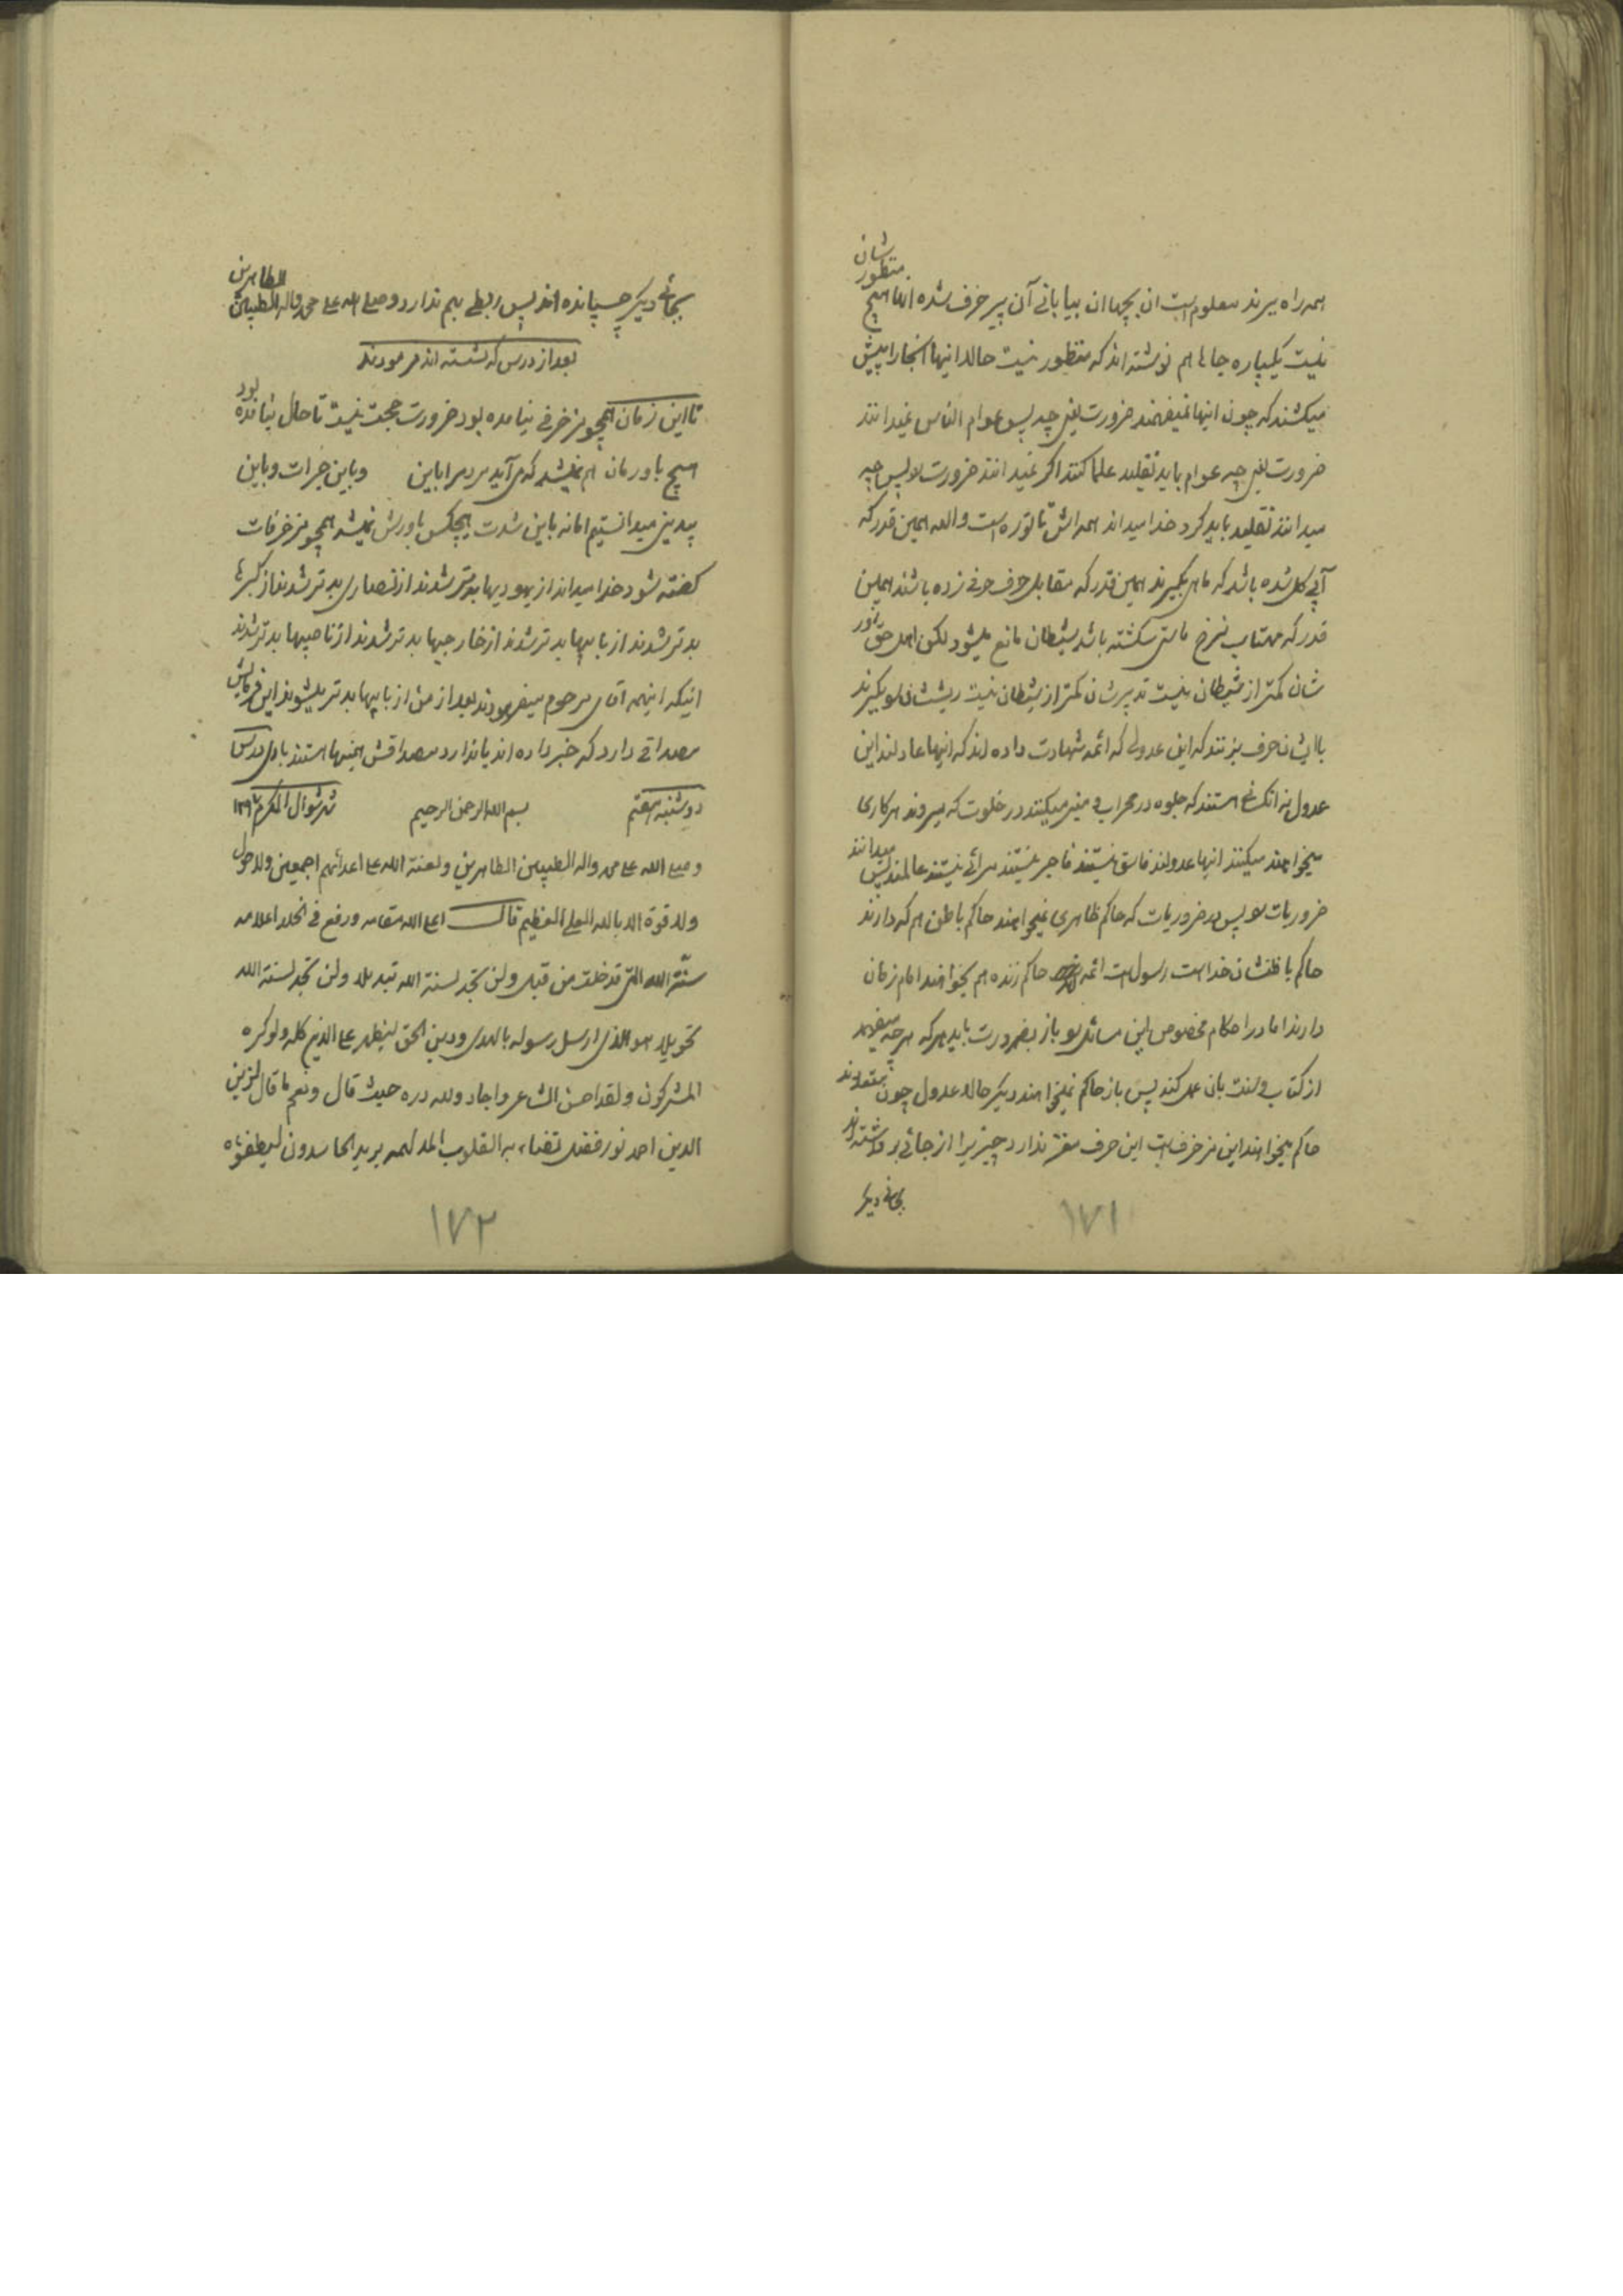 همه راه میرند معلوم است ان بچها ان بیابانی آن پیر خرف شده اینها هیچ منظورشان
نیست یکپاره جاها هم نوشته اند که منظور نیست حالا اینها انجا را پیش
میکشند که چون اینها نمیفهمند ضرورت یعنی چه پس عوام الناس نمیدانند
ضرورت یعنی چه عوام باید تقلید علما کنند اگر نمیدانند ضرورت را پس چه
میدانند تقلید باید کرد خدا میداند همه اش ... است والله همین قدر که
آبی گل شده باشد که ماهی بگیرند همین قدر که مقابل حرف حرفی زده باشند همین
قدر که مهتاب بنرخ ماستی گشته باشد شیطان مانع میشود لکن اهل حق زور
شان کمتر از شیطان نیست تدبیرشان کمتر از شیطان نیست ریششان را بگیرند
با ایشان حرف بزنند که این عدولی که ائمه شهادت داده اند که اینها عادلند این
عدول نه انکسانی هستند که جلوه در محراب و منبر میکنند در خلوت که میروند هر کاری
میخواهند میکنند اینها عدولند فاسق نیستند فاجر نیستند مرائی نیستند عالمند میدانند پس
ضروریات را پس در ضروریات که حاکم ظاهری نمیخواهند حاکم باطن هم که دارند
حاکم باطنشان خدا است رسول است ائمه حاکم زنده هم بخواهند امام زمان
دارند اما در احکام مخصوص این مسائل را باز بضرورت باید هر که هر چه میفهمد
از کتاب و سنت بان عمل کند پس باز حاکم نمیخواهند دیگر حالا عدول چون متعددند
حاکم میخواهند این مزخرف است این حرف مغز ندارد چیزیرا از جائی برداشته اند
بجائی دیگر
۱۷۱
بجائی دیگر چسبانده اند پس ربطی بهم ندارد و صلی الله علی محمد و اله الطیبین الطاهرین
بعد از درس که نشسته اند فرمودند
تا این زمان همچو مزخرفی نیامده بود ضرورت حجت نیست تا حال نیامده بود
هیچ باورمان هم نمیشد که می آید مردیرا باین وباین جرات وباین
بیدینی میدانستیم اما نه باین شدت هیچکس باورش نمیشد همچو مزخرفات
گفته شود خدا میداند از یهودیها بدتر شدند از نصاری بدتر شدند از گبرها
بدتر شدند از بابیها بدتر شدند از خارجیها بدتر شدند از ناصبیها بدتر شدند
اینکه اینهمه اقای مرحوم میفرمودند بعد از من از بابیها بدتر میشوند این فرمایش
مصداقی دارد که خبر داده اند یا ندارد مصداقش همینها هستند بادی درس
دوشنبه هفتم بسم الله الرحمن الرحیم شهر شوال المکرم ۱۲۹۷
و صلی الله علی محمد واله الطیبین الطاهرین ولعنة الله علی اعدائهم اجمعین ولا حول
ولا قوة الا بالله العلی العظیم قال اعلی الله مقامه ورفع فی الخلد اعلامه
سنّة الله التی قد خلت من قبل ولن تجد لسنة الله تبدیلا ولن تجد لسنة الله
تحویلا هو الذی ارسل رسوله بالهدی ودین الحق لیظهره علی الدین کله ولو کره
المشرکون ولقد احسن الشاعر واجاد ولله دره حیث قال ونعم ما قال لزین
الدین احمد نور فضل تضاء به القلوب المدلهمه یرید الحاسدون لیطفؤه
۱۷۲